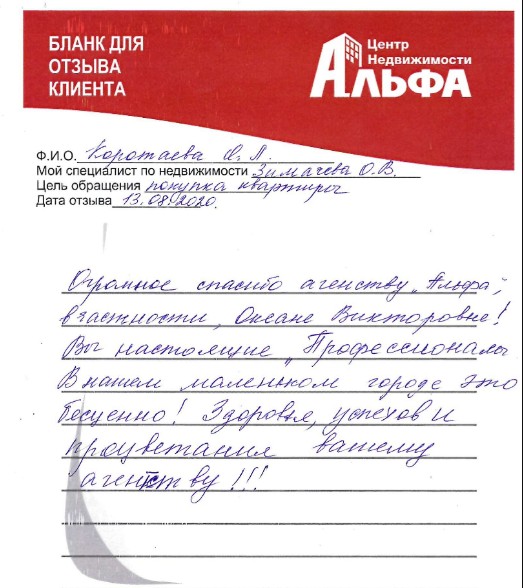 БЛАНК ДЛЯ
ОТЗЫВА
КЛИЕНТА
Центр
Недвижимости
АЛЬФА
Ф.И.О. Коротаева О. Л.
Мой специалист по недвижимости Зимачева О.В.
Цель обращения покупка квартиры
Дата отзыва 13.08.2020.
Огромное спасибо агенству „Альфа",
вчастности, Оксане Викторовне!
Вы настоящие „Профессионалы
В нашем маленьком городе это
бесценно! Здоровья, успехов и
процветания вашему
агентству!!!